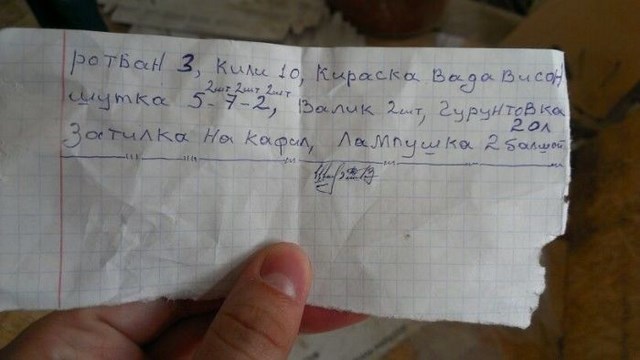 ротбан 3, кили 10, кираска вада висон
2шт 2шт 2шт
шутка 5-7-2, Валик 2шт, гурунтовка
20л
Затилка на кафил, лампушка 2 балшой